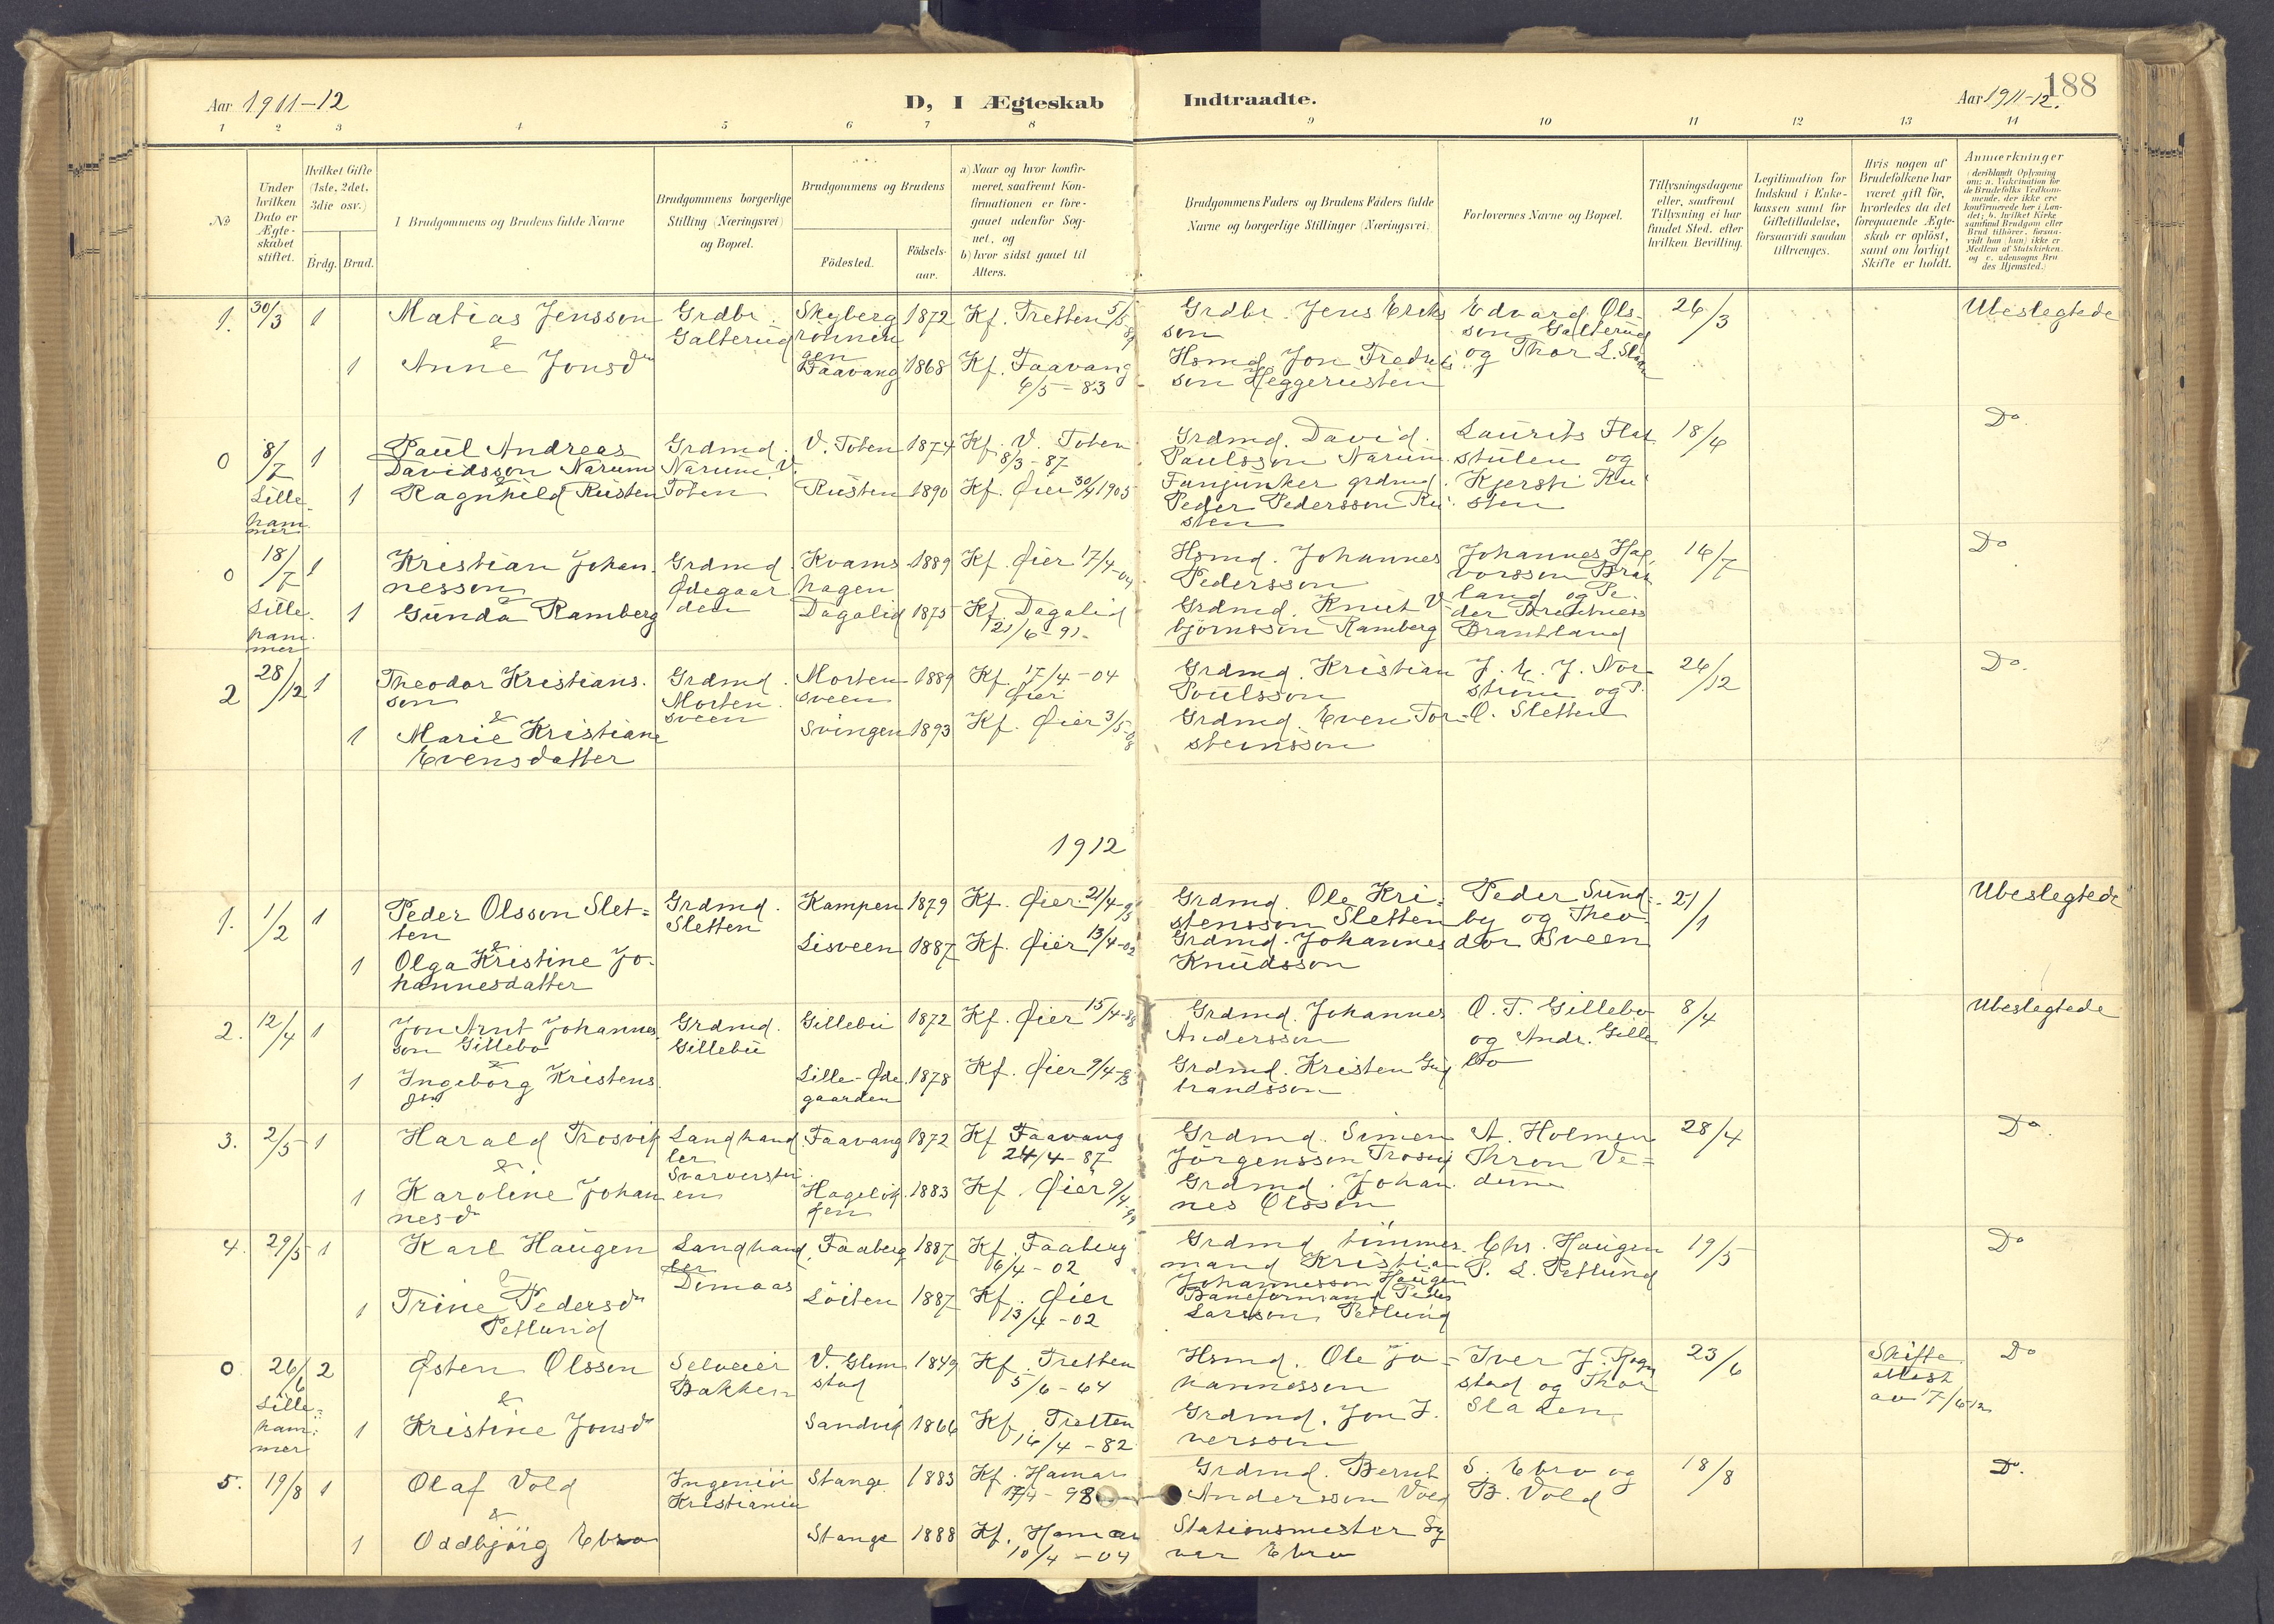 Aar 1911-12
D, I Ægteskab
Indtraadte.
Aar 1911-12.
188
1 2 3 4 5 6 7 8 9 10 11 12 13 14
No
Under hvilken Dato er Ægteskabet stiftet.
Hvilket Gifte (1ste, 2det, 3die osv.)
Brdg. Brud.
Brudgommens og Brudens fulde Navne
Brudgommens borgerlige Stilling (Næringsvei) og Bopæl.
Brudgommens og Brudens
Födested.
Födsels-aar.
a) Naar og hvor konfirmeret, saafremt Konfirmationen er foregaaet udenfor Sognet, og
b) hvor sidst gaaet til Alters.
Brudgommens Faders og Brudens Faders fulde Navne og borgerlige Stillinger (Næringsvei)
Forlovernes Navne og Bopæl.
Tillysningsdagene eller, saafremt Tillysning ei har fundet Sted, efter hvilken Bevilling.
Legitimation for Indskud i Enkekassen samt for Giftetilladelse, forsaavidt saadan tiltrænges.
Hvis nogen af Brudefolkene har været gift för, hvorledes da det foregaaende Ægteskab er oplöst, samt om lovligt Skifte er holdt.
Anmerkninger
1. 30/3 1 Matias Jensson Grdbr. Skyberg 1872 Kf. Tretten 5/5
&
Galterud
Grdbr. Jens Eriksson
Edvard Olsson Galterud og Thor L.
26/3
Ubeslegtede
1 Anne Jonsdr Faavang 1868 Kf. Faavang 6/5-83
Hsmd. Jon Fredriksson Heggerusten
0 8/7 1 Paul Andreas Davidsson Narum Grdmd. Narum V. Toten V. Toten 1874 Kf. V. Toten 8/3-87
Grdmd. David Paulsson Narum
Laurits Flatstulen og Kjersti Rusten
18/6
Do.
Lillehammer
1 Ragnhild Rusten Rusten 1890 Kf. Øier 30/4 1905
Fanjunker grdmd. Peder Pedersson Rusten
0 18/7 1 Kristian Johannesson Grdmd. Ødegaarden Kvamshagen 1889 Kf. Øier 17/4-04
Hsmd. Johannes Pedersson
16/7
Do
Lillehammer
1 Gunda Ramberg Dagalid 1875 Kf. Dagalid 21/6-91-
2 28/12 1 Theodor Kristiansson Grdmd. Mortensveen Mortensveen 1889 Kf. 17/4-04 Øier
Grdmd. Kristian Poulsson
26/12
Do.
&
1 Marie Kristiane Evensdatter Svingen 1893 Kf. Øier 3/5-08
Grdmd. Even Torsteinsson
O. Sletten
1912
1. 1/2 1 Peder Olsson Sletten Grdmd. Sletten Kampen 1879 Kf. Øier 21/4-95
Grdmd. Ole Kristensson Sletten
Peder Sundby og Theodor Sveen
21/1
Ubeslegtede
&
1 Olga Kristine Johannesdatter Lisveen 1887 Kf. Øier 13/4-02
Grdmd. Johannes Knudsson
2. 12/4 1 Jon Arnt Johannesson Gillebo Grdmd. Gillebu Gillebu 1872 Kf. Øier 15/4-88
Grdmd. Johannes Andersson
O. T. Gillebo og Andr. Gillebo
8/4
Ubeslegtede
&
1 Ingeborg Kristens Lille-Ødegaarden 1878 Kf. Øier 9/4-93
Grdmd. Kristen Gulbrandsson
3. 2/5 1 Harald Trosvik Landhandler Faavang 1872 Kf Faavang 24/4-87
Grdmd. Simen Jörgensson
A. Holmen
28/4
Do.
&
1 Karoline Johannesdr 1883 Kf. Øier 9/4-99
Grdmd. Johannes Olsson
4. 29/5 1 Karl Haugen Landhandler Dimaas Faaberg 1887 Kf. Faaberg 6/4-02
Grdmd tömmermand Kristian Johannesson Haugen
Chr. Haugen P. L. Petlund
19/5
Do
&
1 Trine Pedersdr Petlund Löiten 1887 Kf. Øier 13/4-02
Baneformand Peder Larsson Petlund
0 26/6 2 Østen Olsson Selveier Bakken V. Glomstad 1849 Kf. Tretten 5/6-64
Hsmd. Ole Johannesson
Iver J. Rogstad og Thor
23/6
Skifteattest av 17/6-12
Do
Lillehammer
&
1 Kristine Jonsdr Sandvig 1866 Kf. Tretten 16/4-82
Grdmd. Jon Iversson
5. 19/8 1 Olaf Vold Ingeniör Kristiania Stange 1883 Kf. Hamar 17/4-98
Grdmd. Bernt Andersson Vold
S. Ebro og B. Vold
18/8
Do.
&
1 Oddbjörg Ebro Stange 1888 Kf. Hamar 10/4-04
Stationsmester Syver Ebro